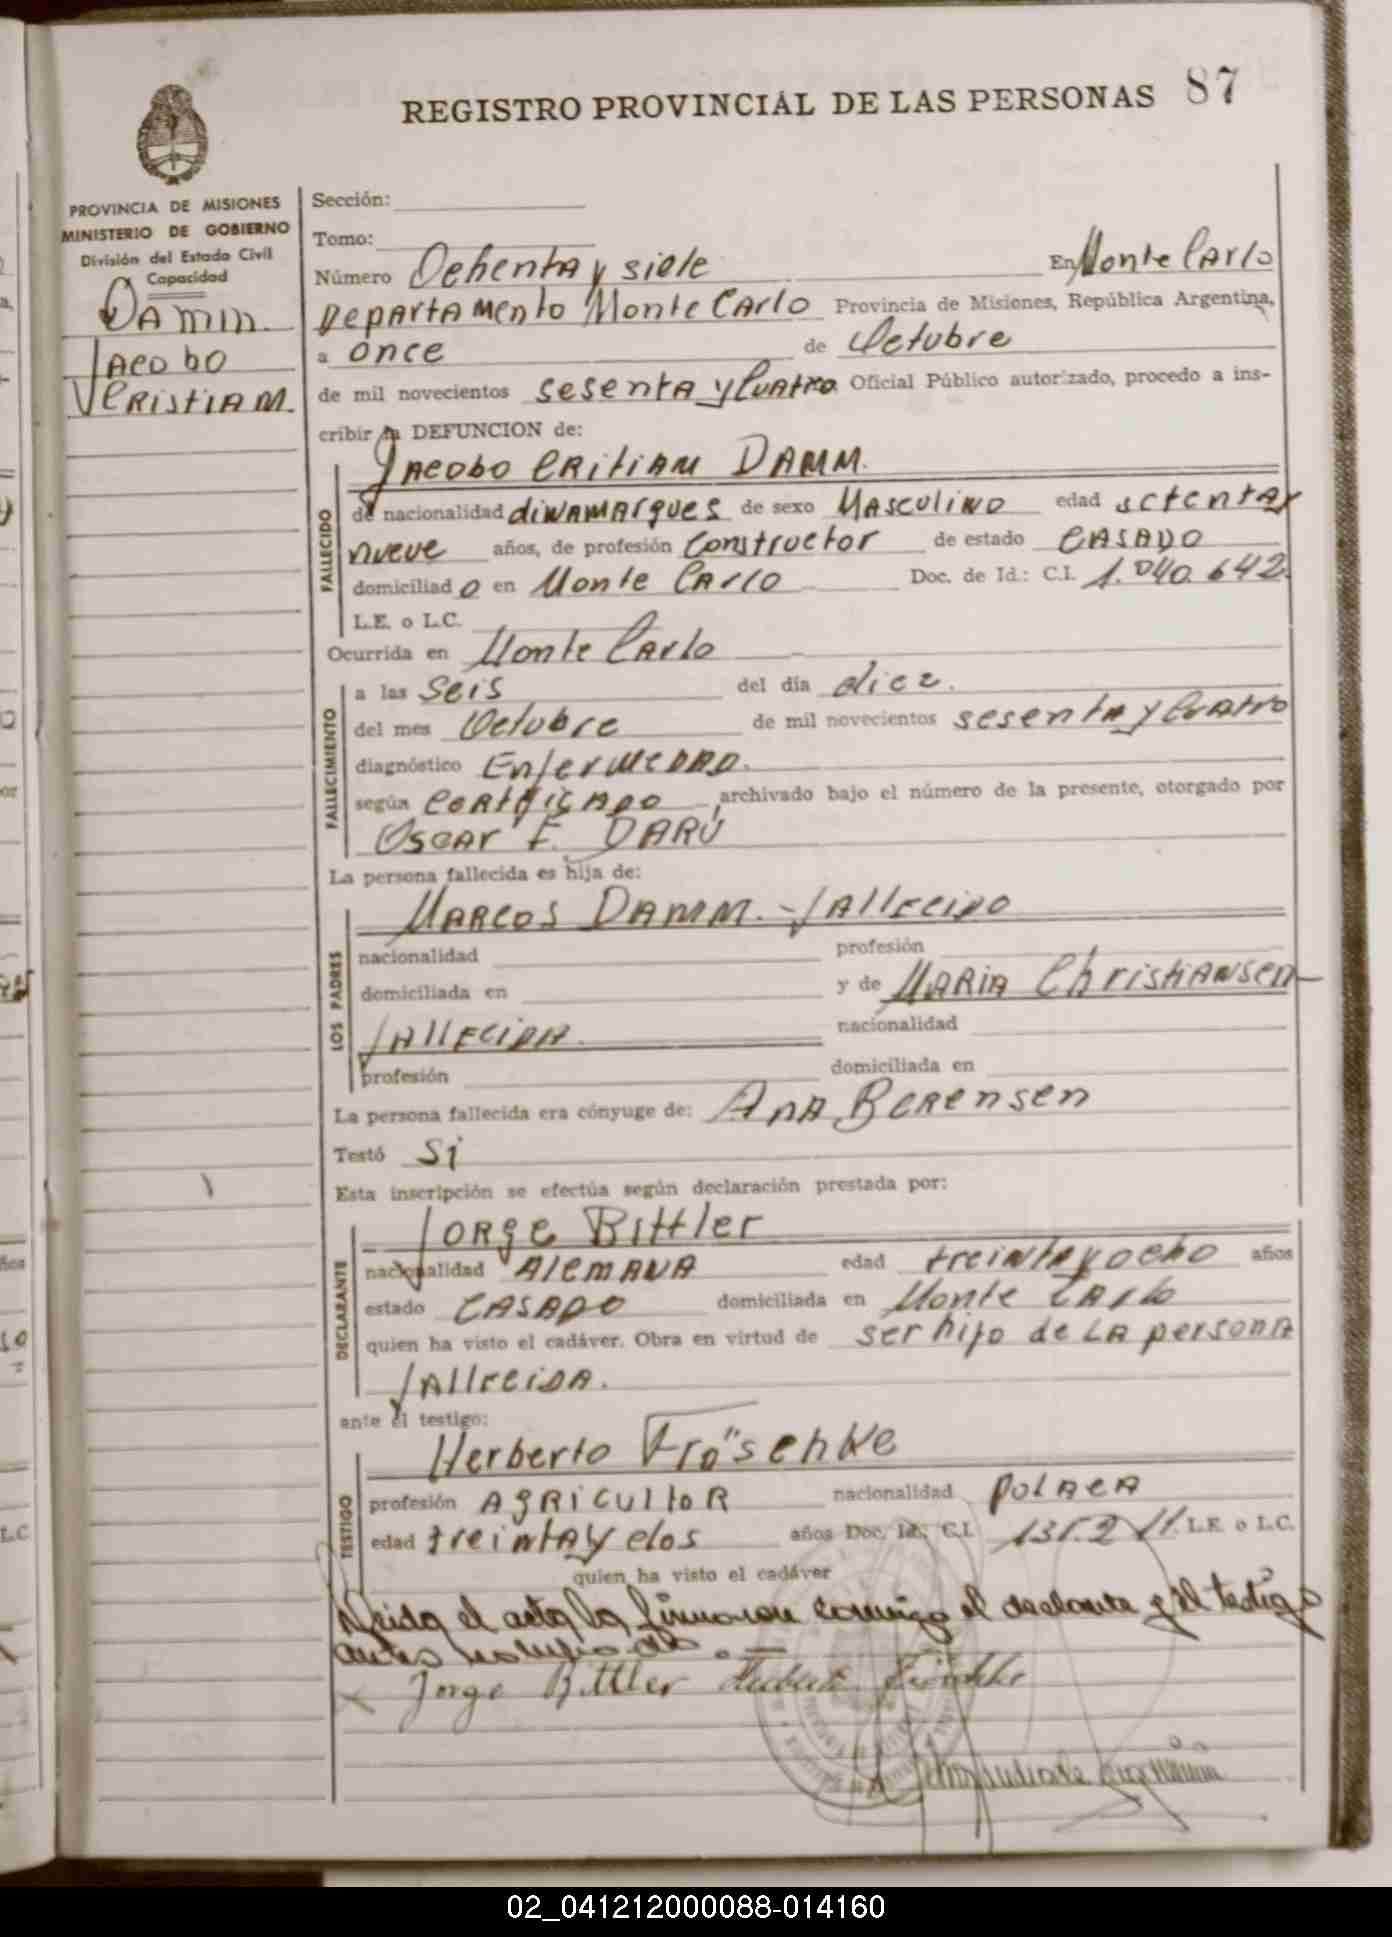 REGISTRO PROVINCIAL DE LAS PERSONAS 87
PROVINCIA DE MISIONES
MINISTERIO DE GOBIERNO
División del Estado Civil
Capacidad
Damm.
Jacobo
Cristiam.
Sección:
Tomo:
Número Ochenta y siete En Monte Carlo
Departamento Monte Carlo Provincia de Misiones, República Argentina,
a once de Octubre
de mil novecientos sesenta y Cuatro Oficial Público autorizado, procedo a ins-
cribir la DEFUNCION de:
Jacobo Critiam DAMM.
FALLECIDO
de nacionalidad dinamarques de sexo Masculino edad setenta y
nueve años, de profesión Constructor de estado CASADO
domiciliado en Monte Carlo Doc. de Id.: C.I. 1.040.642.
L.E. o L.C.
Ocurrida en Monte Carlo
FALLECIMIENTO
a las seis del día diez.
del mes Octubre de mil novecientos sesenta y Cuatro
diagnóstico Enfermedad.
según certificado, archivado bajo el número de la presente, otorgado por
Oscar F. DARÚ
La persona fallecida es hija de:
LOS PADRES
Marcos Damm. - fallecido
nacionalidad profesión
domiciliada en y de Maria Christiansen
fallecida. nacionalidad
profesión domiciliada en
La persona fallecida era cónyuge de: Ana Berensen
Testó Si
Esta inscripción se efectúa según declaración prestada por:
DECLARANTE
Jorge Bittler
nacionalidad Alemana edad treinta y ocho años
estado CASADO domiciliada en Monte Carlo
quien ha visto el cadáver. Obra en virtud de ser hijo de la persona
fallecida.
ante el testigo:
TESTIGO
Herberto Fröschke
profesión Agricultor nacionalidad polaca
edad treinta y dos años Doc. Id.: C.I. 131.211. L.E. o L.C.
quien ha visto el cadáver
Leida el acta la firmaron conmigo el declarante y el testigo
antes
Jorge Bittler
02_041212000088-014160